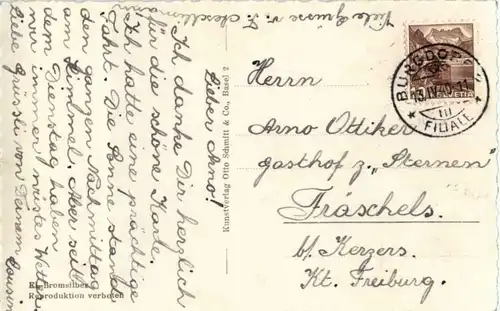 Viele Grüsse v. F. Aeschlimann
Lieber Arno!
Ich danke Dir herzlich
für die schöne Karte.
Ich hatte eine prächtige
Fahrt. Die Sonne stand
den ganzen Nachmittag
am Himmel. Aber seit
dem Dienstag haben
wir immer wüstes Wetter
Liebe Grüssli von Deinem Cousin
Ei-Bromsilber
Reproduktion verboten
Kunstverlag Otto Schmitt & Co., Basel 2
HELVETIA
BURGDORF
13.IV.40
III
FILIALE
Herrn
Arno Ottiker
gasthof z. „Sternen"
Fräschels.
b/. Kerzers.
Kt. Freiburg.